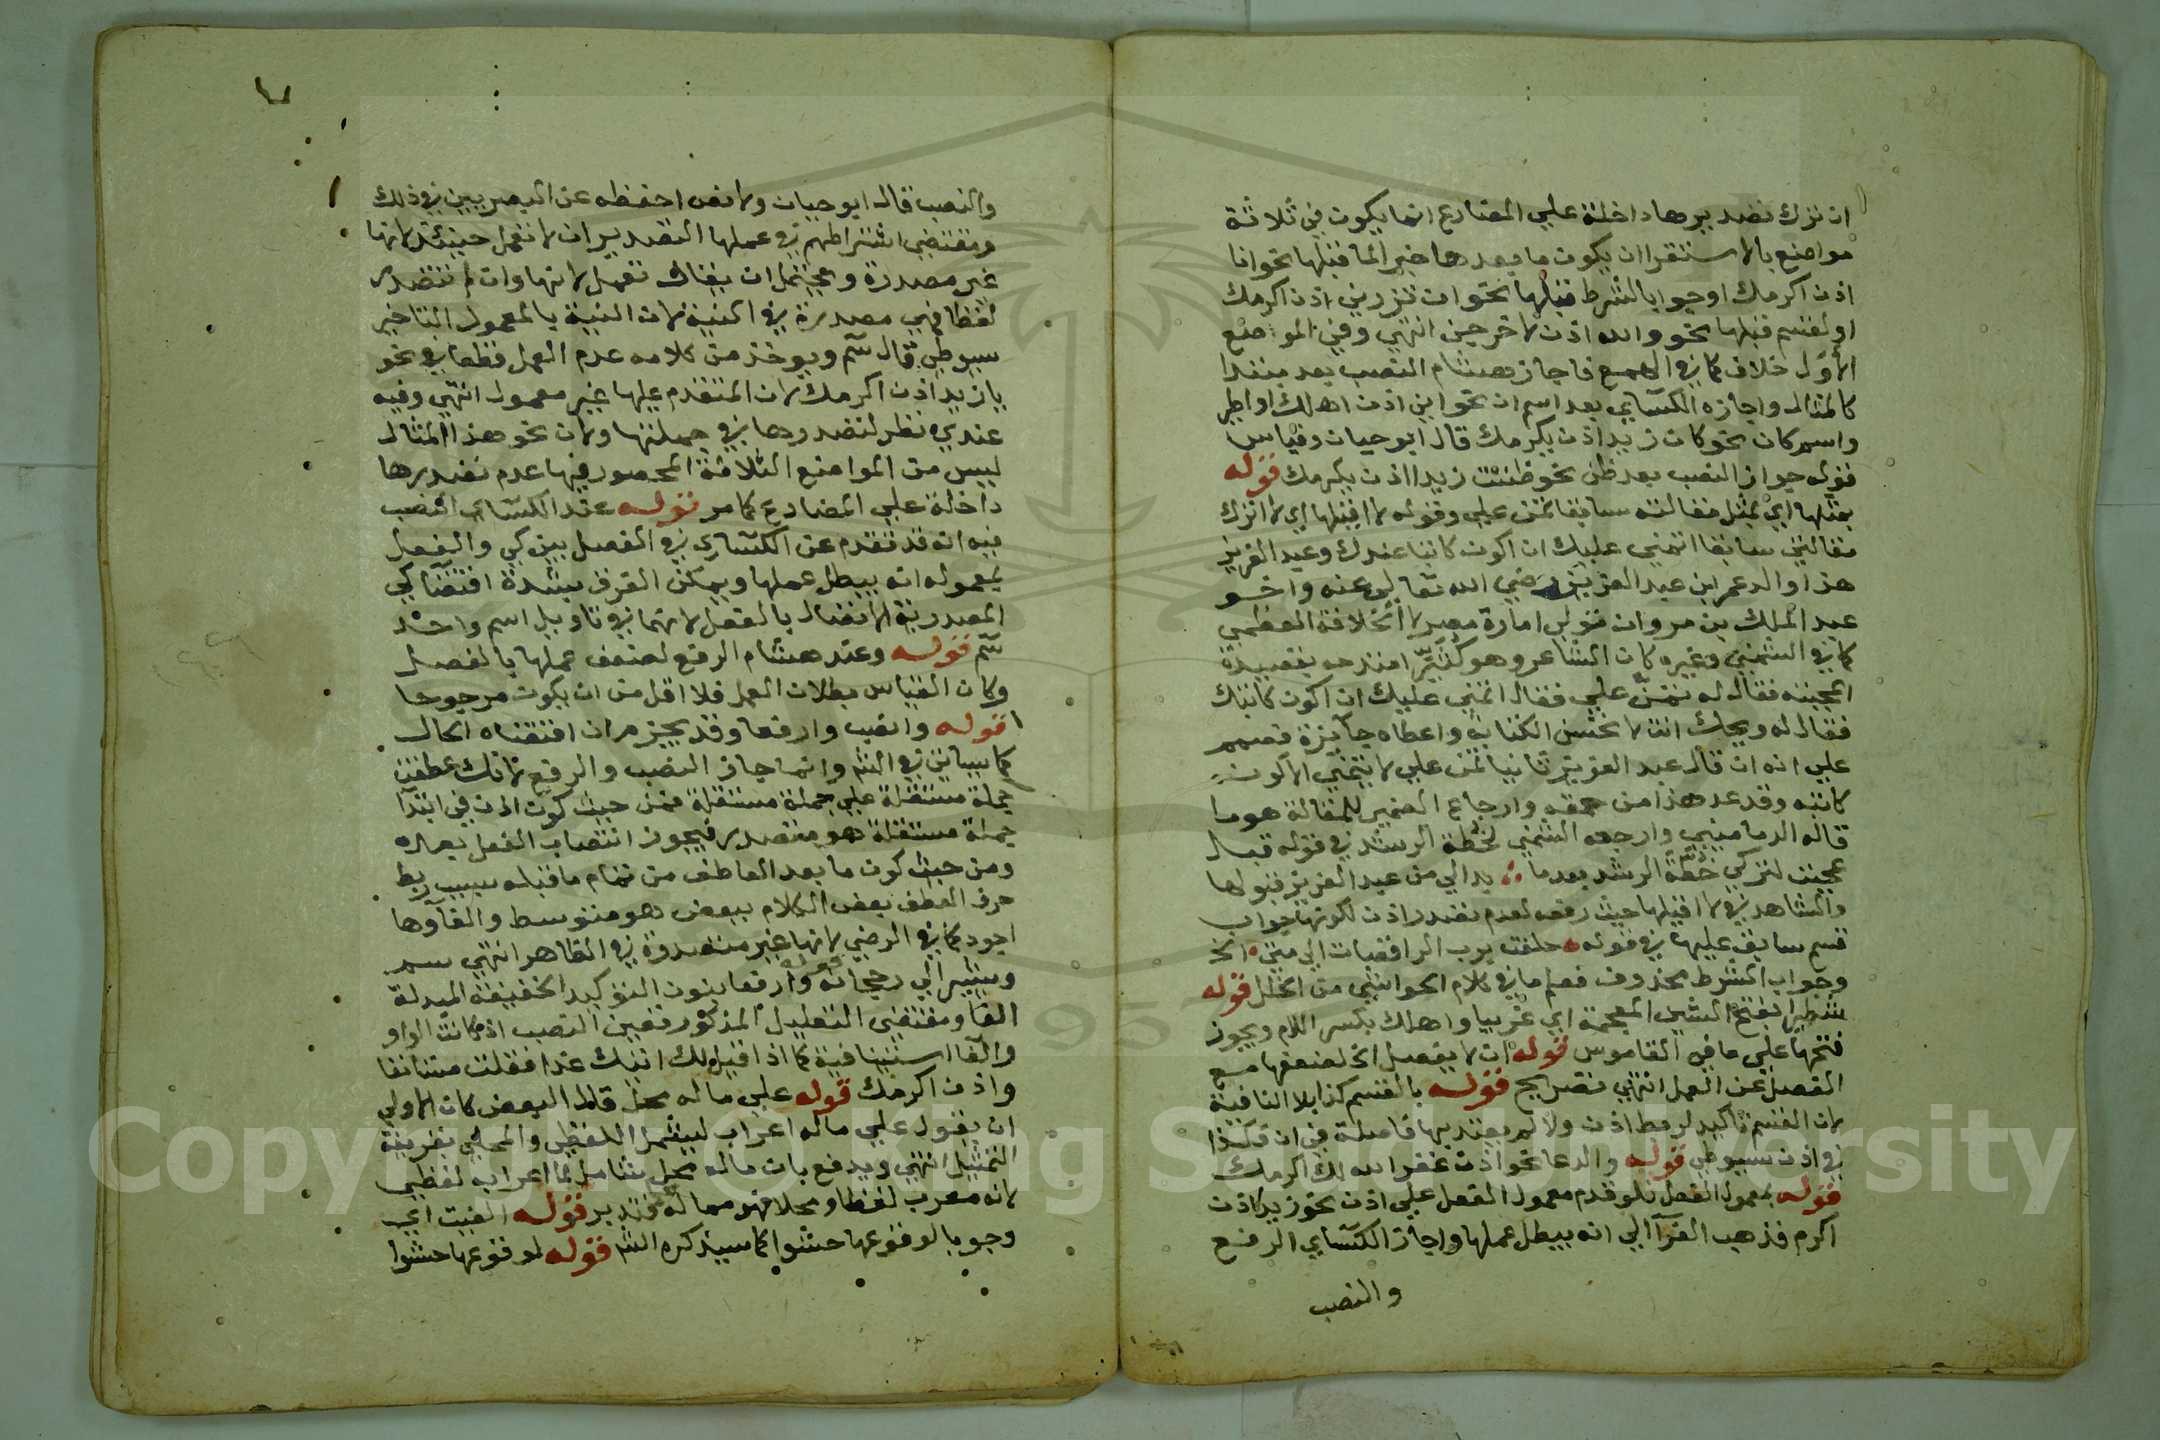 ان ترك تصديرها داخلة علي المضارع انما يكون في ثلاثة
مواضع بالاستقرا ان يكون ما بعدها خبرا لما قبلها نحو انا
اذن اكرمك او جوابا لشرط قبلها نحو ان تزرني اذن اكرمك
او لقسم قبلها نحو والله اذن لاخرجن انتهي وفي المواضع
الاول خلاف كما في الهمع فاجاز هشام النصب بعد مبتدا
كالمثال واجازه الكسآي بعد اسم ان نحو اني اذن اهلك او اطيرا
واسم كان نحو كان زيد اذن يكرمك قال ابو حيان وقياس
قوله جواز النصب بعد ظن نحو ظننت زيدا اذن يكرمك قوله
بمثلها اي بمثل مقالته سابقا تمن علي وقوله لا اقيلها اي لا اترك
مقالتي سابقا اتمني عليك ان اكون كاتبا عندك وعبد العزيز
هذا والد عمر ابن عبد العزيز رضي الله تعالي عنه واخو
عبد الملك بن مروان تولي امارة مصر لا الخلافة العظمي
كما في الشمني وغيره كان الشاعر وهو كثير امتدحه بقصيدة
اعجبته فقال له تمن علي فقال اتمني عليك ان اكون كاتبك
فقال له ويحك انت لا تحسن الكتابة واعطاه جآيزة فصمم
علي انه ان قال عبد العزيز ثانيا تمن علي لا يتمني الا كونه
كاتبه وقد عد هذا من حمقه وارجاع الضمير للمقالة هو ما
قاله الدماميني وارجعه الشمني لخطة الرشد في قوله قبل
عجبت لتركي خطة الرشد بعدما بدا لي من عبد العزيز قبولها
والشاهد في لا اقيلها حيث رفعه لعدم تصدر اذن لكونها جواب
قسم سابق عليها في قوله حلفت برب الراقصات الي مني الخ
وجواب الشرط محذوف فعلم ما في كلام الحواشي من الخلل قوله
شطيرا بفتح الشين المعجمة اي غريبا واهلك بكسر اللام ويجوز
فتحها علي ما في القاموس قوله ان لا يفصل الخ لضعفها مع
الفصل عن العمل انتهي تصريح قوله بالقسم كذا بلا النافية
لان القسم تاكيد لربط اذن ولا لم يعتد بها فاصلة في ان فكذا
في اذن سيوطي قوله والدعا نحو اذن غفر الله لك اكرمك
قوله بمعمول الفعل فلو قدم معمول الفعل علي اذن نحو زيدا اذن
اكرم فذهب الفرآ الي انه يبطل عملها واجاز الكسآي الرفع
والنصب
والنصب قال ابو حيان ولا نص احفظه عن البصريين في ذلك
ومقتضي اشتراطهم في عملها التصدير ان لا تعمل حينئذ لانها
غير مصدرة ويحتمل ان يقال تعمل لانها وان لم تتصدر
لفظا فهي مصدرة في النية لان النية بالمعمول التاخير
سيوطي قال سم ويوخذ من كلامه عدم العمل قطعا في نحو
يا زيد اذن اكرمك لان المتقدم عليها غير معمول انتهي وفيه
عندي نظر لتصدرها في جملتها ولان نحو هذا المثال
ليس من المواضع الثلاثة المحصور فيها عدم تصديرها
داخلة علي المضارع كما مر قوله عند الكسآي النصب
فيه انه قد تقدم عن الكسآي في الفصل بين كي والفعل
بمعموله انه يبطل عملها ويمكن الفرق بشدة اقتضآ كي
المصدرية الاتصال بالفعل لانهما في تاويل اسم واحد
سم قوله وعند هشام الرفع لضعف عملها بالفصل
وكان القياس بطلان العمل فلا اقل من ان يكون مرجوحا
قوله وانصب وارفعا وقد يجزم ان اقتضاه الحال
كما سياتي في الشم وانما جاز النصب والرفع لانك عطفت
جملة مستقلة علي جملة مستقلة فمن حيث كون اذن في ابتدآ
جملة مستقلة هو متصدر فيجوز انتصاب الفعل بعده
ومن حيث كون ما بعد العاطف من تمام ما قبله بسبب ربط
حرف العطف بعض الكلام ببعض هو متوسط والغآوها
اجود كما في الرضي لانها غير متصدرة في الظاهر انتهي سم
ويشير الي رجحانه قوله وارفعا بنون التوكيد الخفيفة المبدلة
الفا ومقتضي التعليل المذكور تعين النصب اذا كانت الواو
والفا استينافية كما اذا قيل لك اتيك غدا فقلت مستانفا
واذن اكرمك قوله علي ما له محل قال البعض كان الاولي
ان يقول علي ما له اعراب ليشمل اللفظي والمحلي بقرينة
التمثيل انتهي ويدفع بان ما له محل شامل لما اعرابه لفظي
لانه معرب لفظا ومحلا فهو مما له محل فتدبر قوله الغيت اي
وجوبا لوقوعها حشوا كما سيذكره الشم قوله لوقوعها حشوا